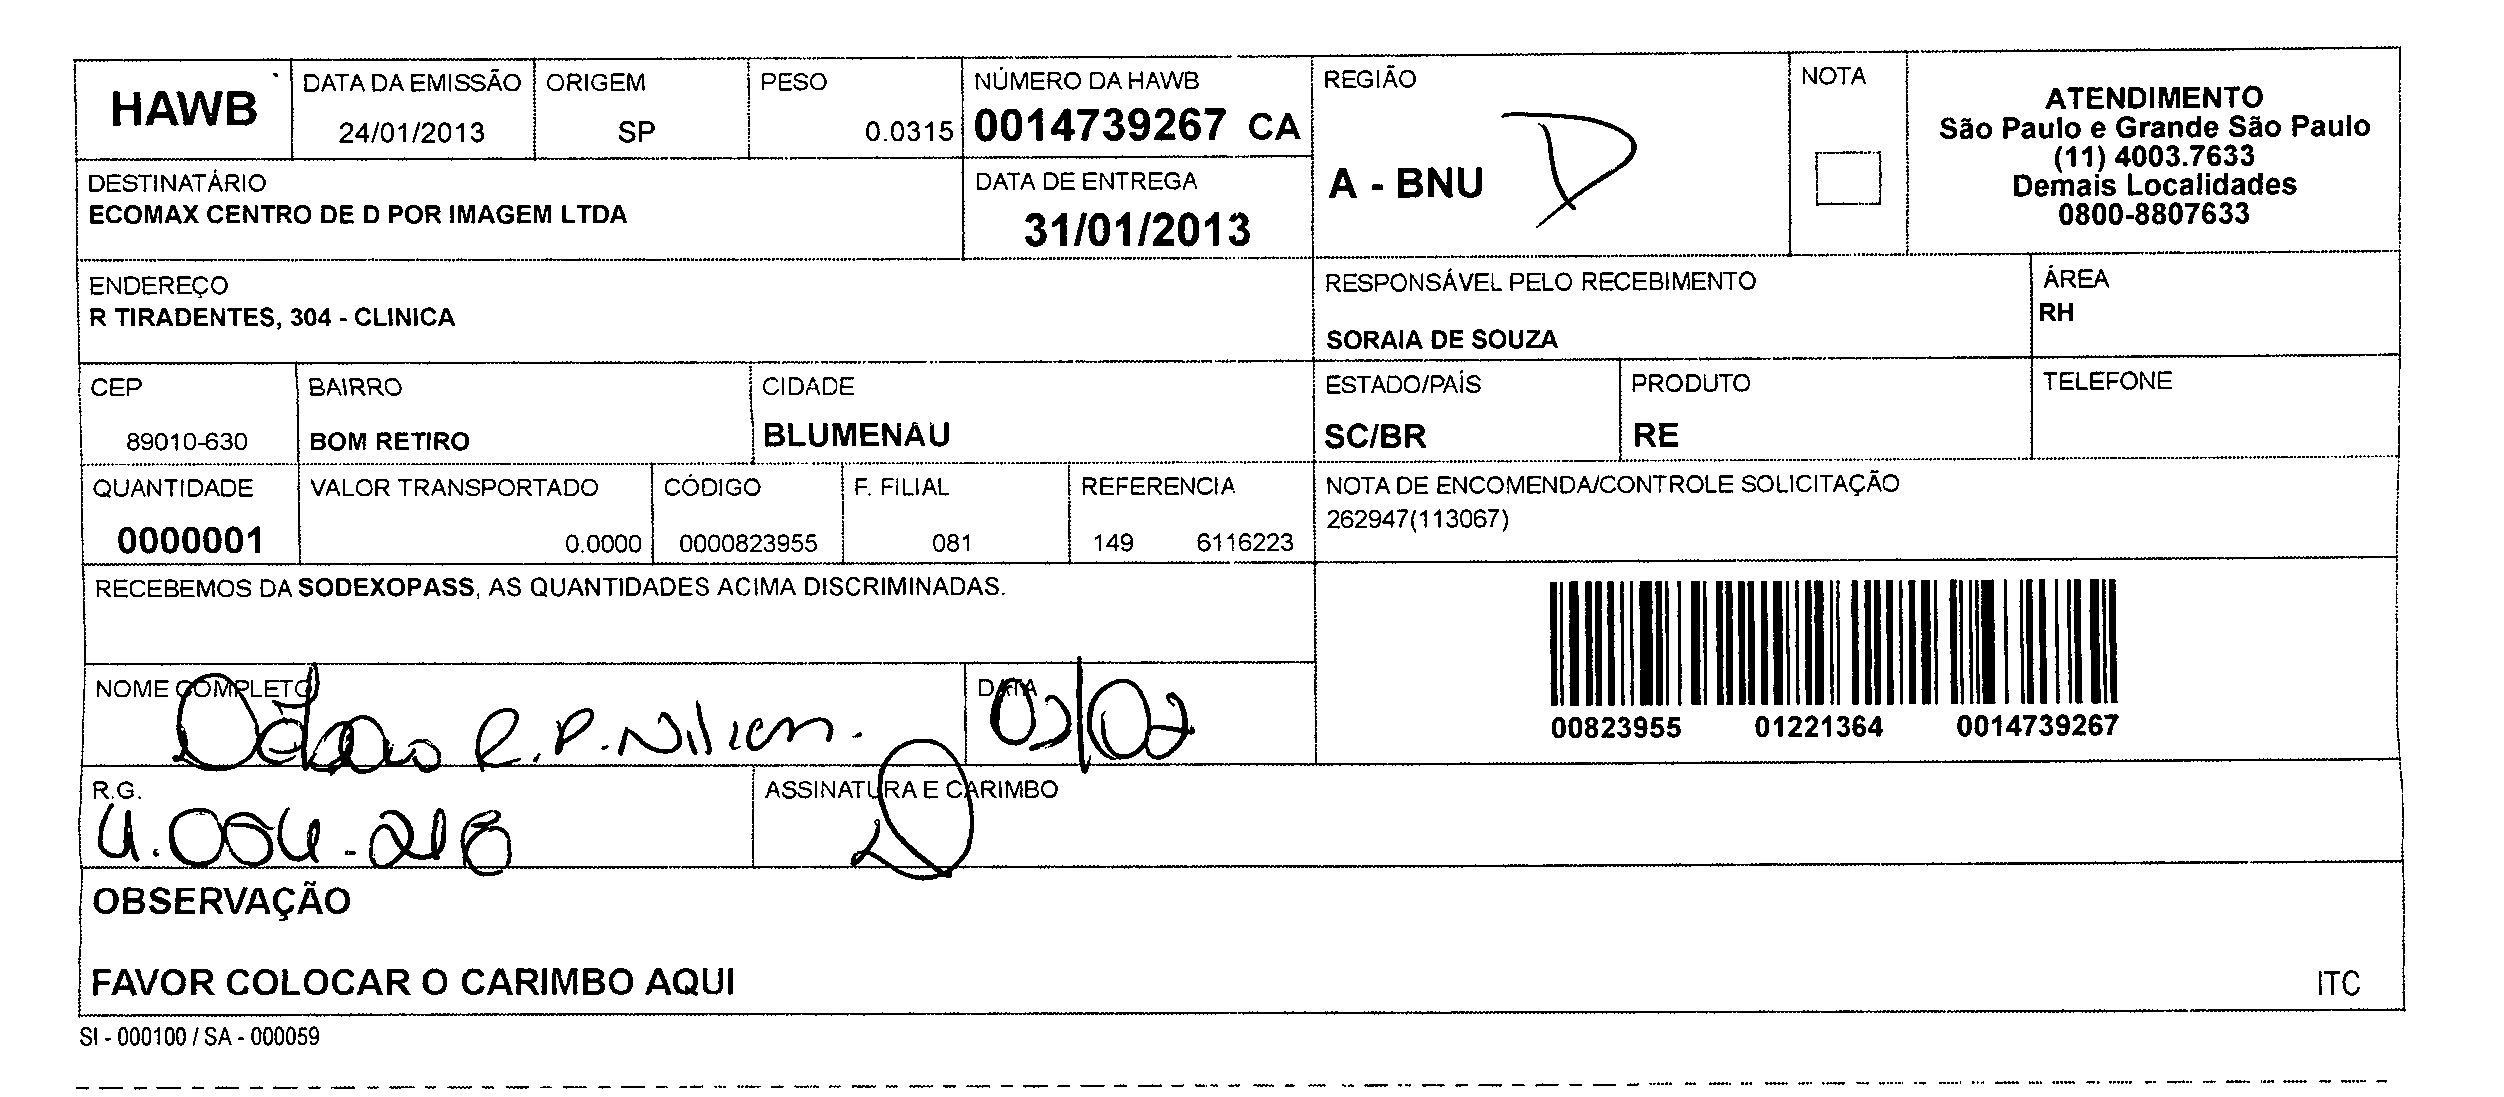 HAWB
DATA DA EMISSÃO
24/01/2013
ORIGEM
SP
PESO
0.0315
NÚMERO DA HAWB
0014739267 CA
REGIÃO
A - BNU
NOTA
ATENDIMENTO
São Paulo e Grande São Paulo
(11) 4003.7633
Demais Localidades
0800-8807633
DESTINATÁRIO
ECOMAX CENTRO DE D POR IMAGEM LTDA
DATA DE ENTREGA
31/01/2013
ENDEREÇO
R TIRADENTES, 304 - CLINICA
RESPONSÁVEL PELO RECEBIMENTO
SORAIA DE SOUZA
ÁREA
RH
CEP
89010-630
BAIRRO
BOM RETIRO
CIDADE
BLUMENAU
ESTADO/PAÍS
SC/BR
PRODUTO
RE
TELEFONE
QUANTIDADE
0000001
VALOR TRANSPORTADO
0.0000
CÓDIGO
0000823955
F. FILIAL
081
REFERENCIA
149 6116223
NOTA DE ENCOMENDA/CONTROLE SOLICITAÇÃO
262947(113067)
RECEBEMOS DA SODEXOPASS, AS QUANTIDADES ACIMA DISCRIMINADAS.
00823955 01221364 0014739267
NOME COMPLETO
R. P. Nilsen.
DATA
R.G.
4.054-218
ASSINATURA E CARIMBO
OBSERVAÇÃO
FAVOR COLOCAR O CARIMBO AQUI
ITC
SI - 000100 / SA - 000059